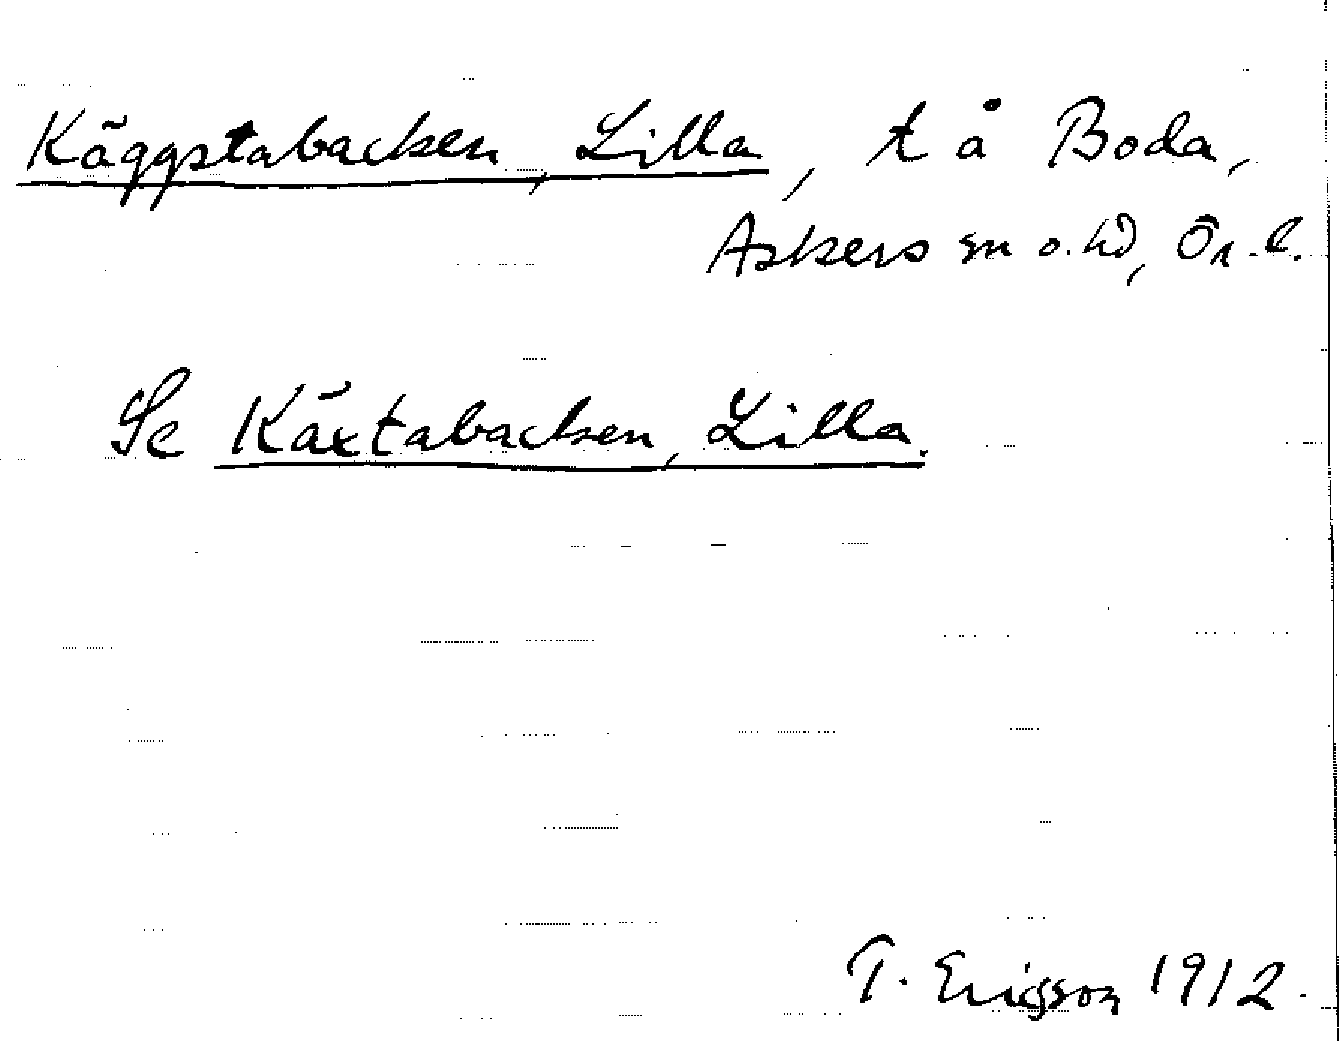 Käggstabacken, Lilla, t å Boda,
Askers sn o. hd, Ör. l.
Se Käxtabacken, Lilla.
T. Ericsson 1912.